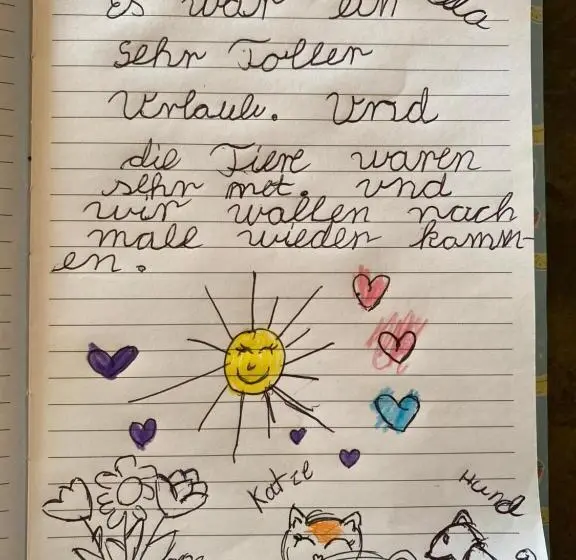 Es war ein
sehr Toller
Urlaub. Und
die Tiere waren
sehr net. und
wir wallen nach
male wieder kamm-
en.
Katze
Hund